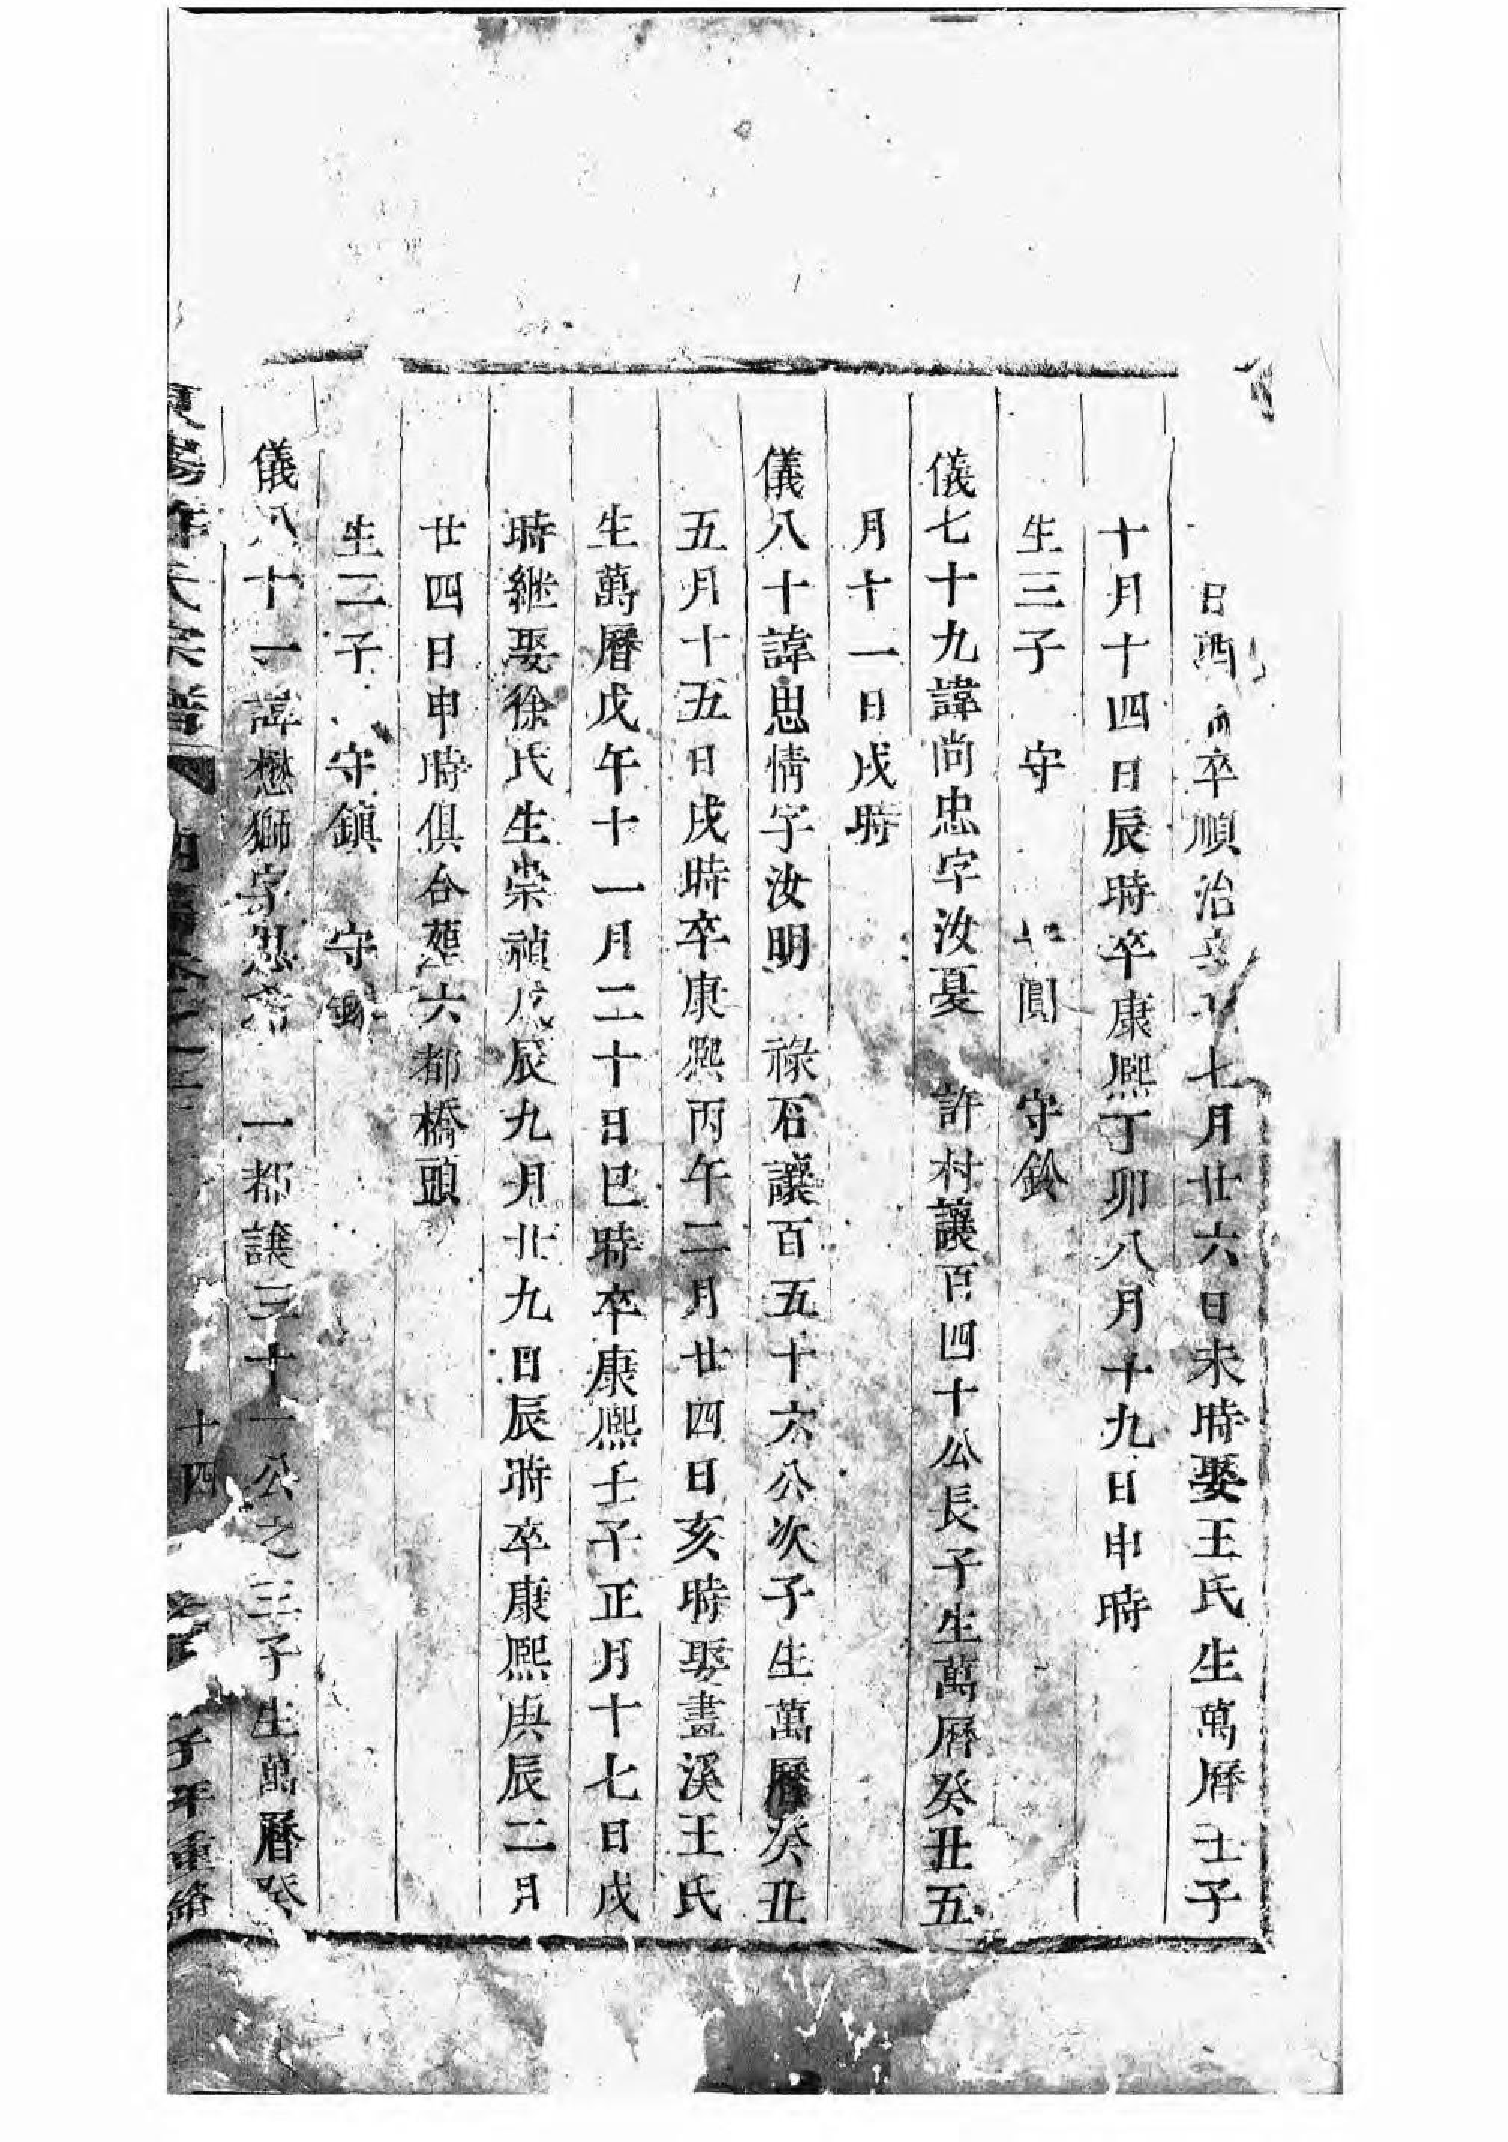 日酉 卒順治 七月廿六日未時娶王氏生萬曆壬子
十月十四日辰時卒康熙丁卯八月十九日申時
生三子 守 守圓 守鈴
儀七十九諱尚忠字汝憂 許村讓百四十公長子生萬曆癸丑五
月十一日戌時
儀八十諱思情字汝明 祿石讓百五十六公次子生萬曆癸丑
五月十五日戌時卒康熙丙午二月廿四日亥時娶晝溪王氏
生萬曆戊午十一月二十日巳時卒康熙壬子正月十七日戌
時継娶徐氏生崇禎戊辰九月廿九日辰時卒康熙庚辰二月
廿四日申時俱合葬六都橋頭
生二子 守鎮 守
儀八十一諱懋獅字思 一都讓三十一公之三子生萬曆癸
東陽許氏宗譜 卷之 十四 子年重繕